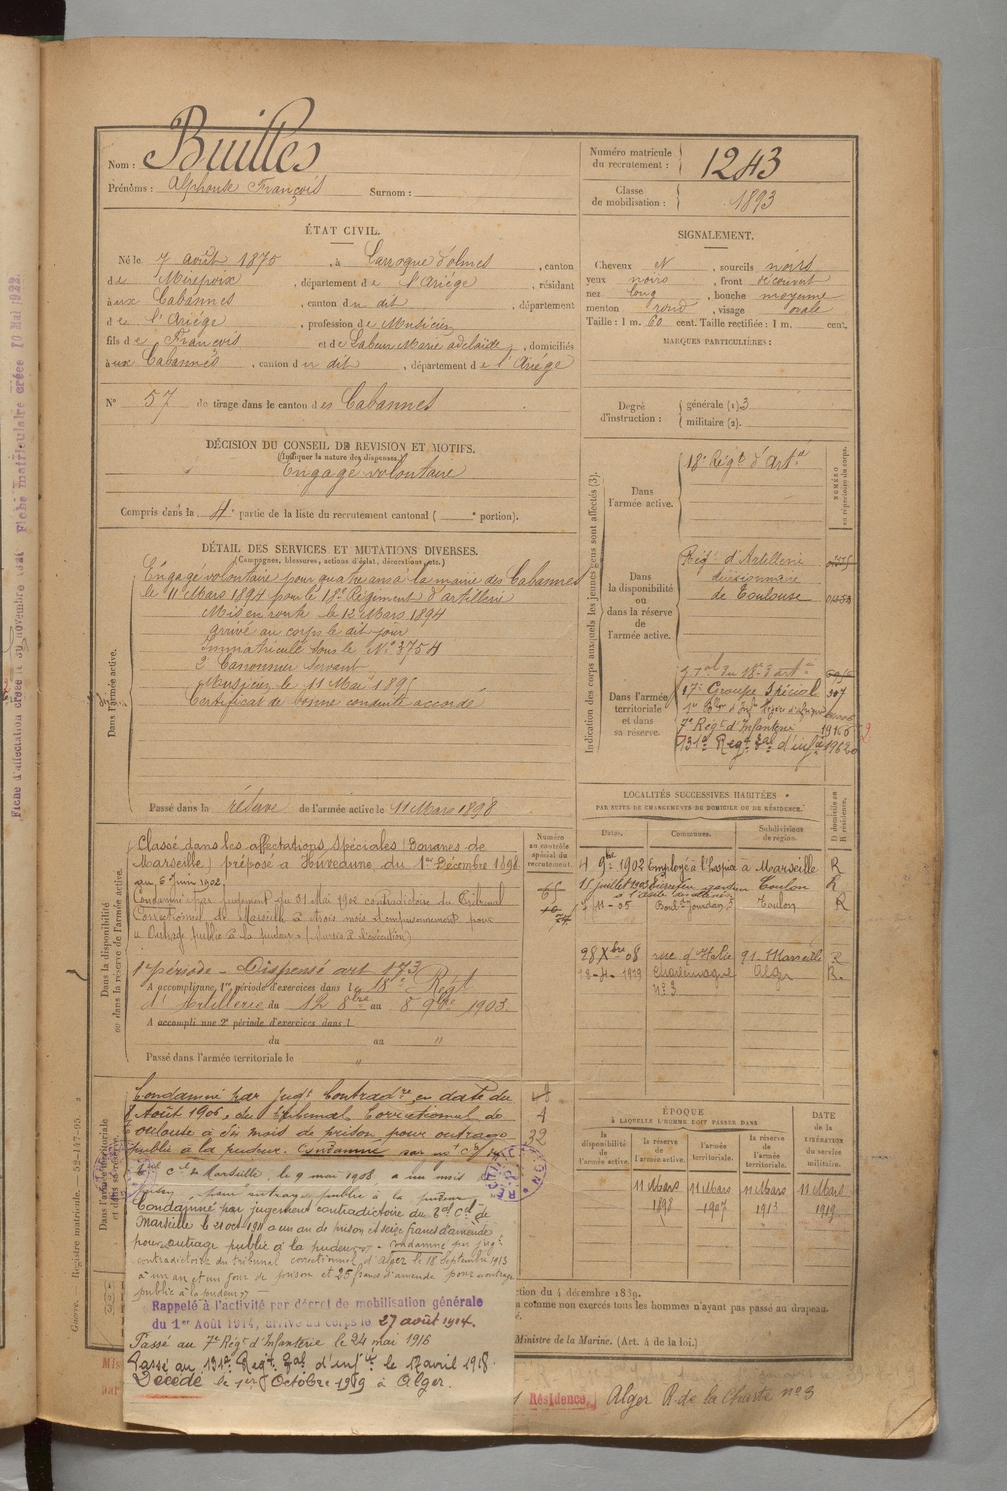 Nom : Builles
Prénoms : Alphonse François Surnom :
Numéro matricule du recrutement : 1243
Classe de mobilisation : 1893
ÉTAT CIVIL.
Né le 7 août 1870, à Larroque d'olmes, canton
de Mirepoix, département de l'Ariège, résidant
à aux Cabannes, canton du dit, département
de l'Ariège, profession de Musicien
fils de François et de Marie adelaide, domiciliés
à aux Cabannes, canton du dit, département de l'Ariège
N° 57 de tirage dans le canton des Cabannes
SIGNALEMENT.
Cheveux N, sourcils noirs
yeux noirs, front découvert
nez long, bouche moyenne
menton rond, visage ovale
Taille : 1 m. 60 cent. Taille rectifiée : 1 m. cent.
MARQUES PARTICULIÈRES :
Degré d'instruction : générale (1) 3
militaire (2).
DÉCISION DU CONSEIL DE REVISION ET MOTIFS.
(Indiquer la nature des dispenses.)
Engagé volontaire
Compris dans la 4e partie de la liste du recrutement cantonal ( e portion).
DÉTAIL DES SERVICES ET MUTATIONS DIVERSES.
(Campagnes, blessures, actions d'éclat, décorations, etc.)
Dans l'armée active.
Engagé volontaire pour quatre ans à la mairie des Cabannes
le 11 Mars 1894 pour le 18e Régiment d'artillerie
Mis en route le 12 Mars 1894
arrivé au corps le dit jour
Immatriculé sous le N° 3754
2e Canonnier Servant
Musicien le 11 Mai 1895
Certificat de bonne conduite accordé
Passé dans la réserve de l'armée active le 11 Mars 1898
Indication des corps auxquels les jeunes gens sont affectés (3).
NUMÉRO au répertoire du corps.
Dans l'armée active.
18e Régt d'Artie
Dans la disponibilité ou dans la réserve de l'armée active.
Régt d'Artillerie
divisionnaire
de Toulouse
Dans l'armée territoriale et dans sa réserve.
17e Groupe Spécial 307
7e Régt d'Infanterie 19166
131e Regt Tal d'infie 19620
LOCALITÉS SUCCESSIVES HABITÉES
PAR SUITE DE CHANGEMENTS DE DOMICILE OU DE RÉSIDENCE.
Dates. Communes. Subdivisions de région. D domicile ou R résidence.
4 9bre 1902 Employé à l'hospice à Marseille R
15 juillet 1903 Toulon R
11-05 Boul. Jourdan 5 Toulon R
28 Xbre 08 rue d'Italie 91 - Marseille R
Charlemagne Alger R.
n° 3
Dans la disponibilité ou dans la réserve de l'armée active.
Numéro au contrôle spécial du recrutement.
Classé dans les affectations spéciales (Douanes de
Marseille) préposé à Huveaune du 1er Décembre 1898
au 6 juin 1902.
Condamné par jugement du 31 Mai 1902 contradictoire du Tribunal
Correctionnel de Marseille à trois mois d'emprisonnement pour
« Outrage public à la pudeur » (Sursis à l'exécution)
1e période - Dispensé art 173
A accompli une 1re période d'exercices dans le 18e Régt
d'Artillerie du 12 8bre au 8 9bre 1903.
A accompli une 2e période d'exercices dans l
du au "
Passé dans l'armée territoriale le "
Dans l'armée territoriale et dans sa réserve.
Condamné par jugt Contradre en date du
8 Août 1906, du Tribunal Correctionnel de
Toulouse à six mois de prison pour outrage
public à la pudeur. Condamné par
4
32
de Marseille, le 9 mai 1908, à un mois
pour outrage public à la pudeur
Condamné par jugement contradictoire du Tal Cel de
Marseille le 21 oct 1911 à un an de prison et seize francs d'amende
pour outrage public à la pudeur - Condamné par jugt
contradictoire du tribunal correctionnel d'Alger le 18 Septembre 1913
à un an et un jour de prison et 25 francs d'amende pour outrage
public à la pudeur
Rappelé à l'activité par décret de mobilisation générale
du 1er Août 1914, arrivé au corps le 27 août 1914.
Passé au 7e Régt d'Infanterie le 24 mai 1916
Passé au 131e Regt Tal d'infie le 17 avril 1918.
Décédé le 1er Octobre 1929 à Alger.
ÉPOQUE
À LAQUELLE L'HOMME DOIT PASSER DANS
la disponibilité de l'armée active. la réserve de l'armée active. l'armée territoriale. la réserve de l'armée territoriale.
DATE de la LIBÉRATION du service militaire.
11 Mars 1898 11 Mars 1907 11 Mars 1913 11 Mars 1919
ction du 4 décembre 1889.
a comme non exercés tous les hommes n'ayant pas passé au drapeau.
Ministre de la Marine. (Art. 4 de la loi.)
Résidence. Alger R. de la Charte n° 3
Guerre. — Registre matricule. — 32-147-95.
Fiche matriculaire créée 10 Mai 1922.